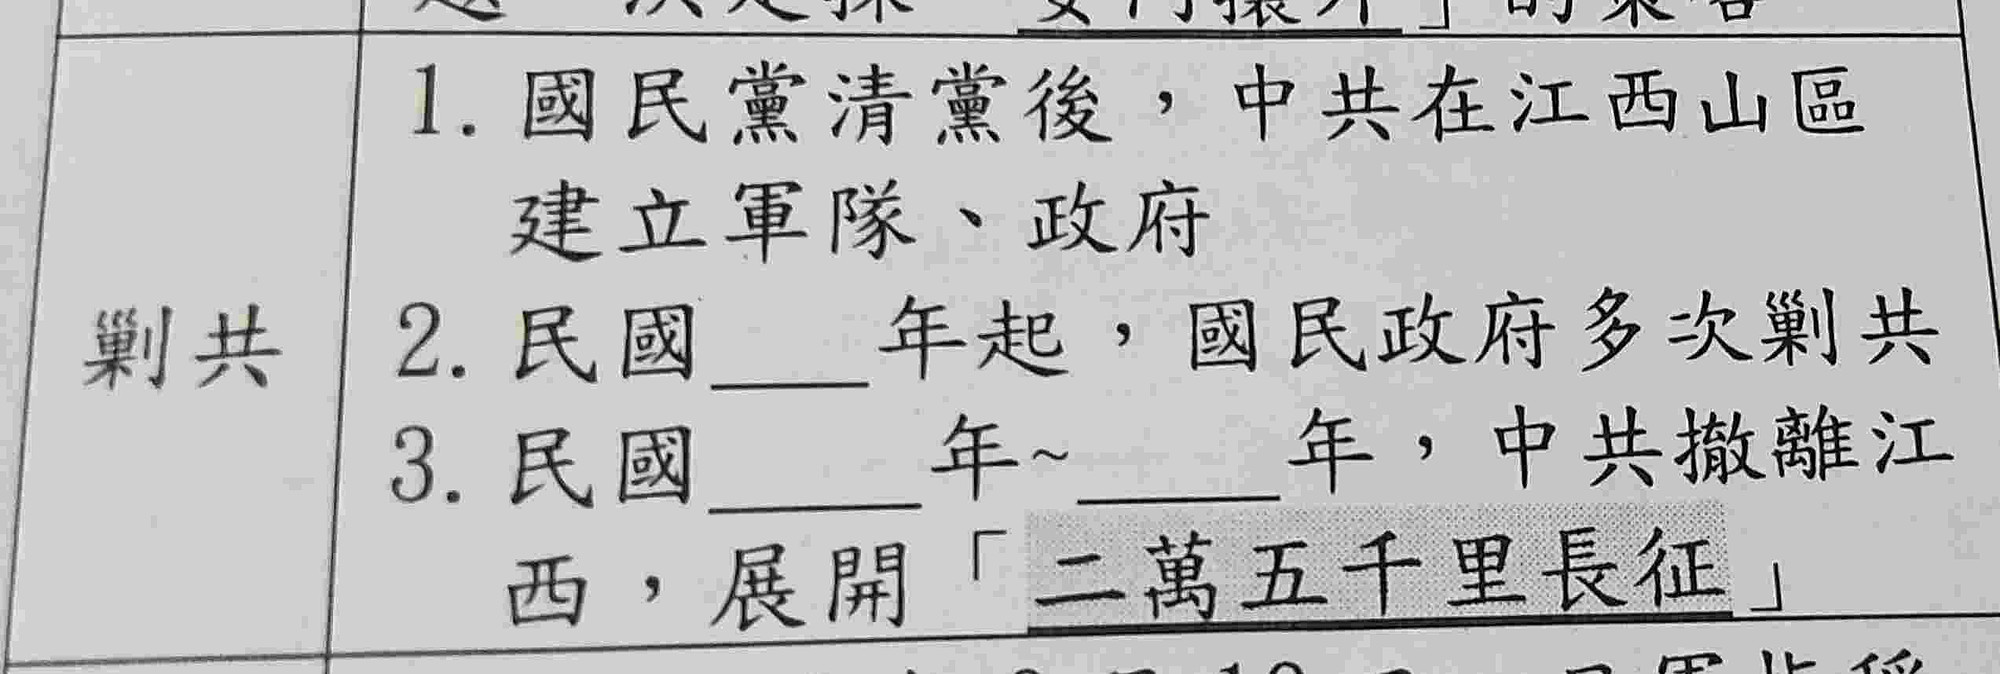 安內攘外」的策略
1. 國民黨清黨後，中共在江西山區
建立軍隊、政府
剿共
2. 民國____年起，國民政府多次剿共
3. 民國____年~____年，中共撤離江
西，展開「二萬五千里長征」